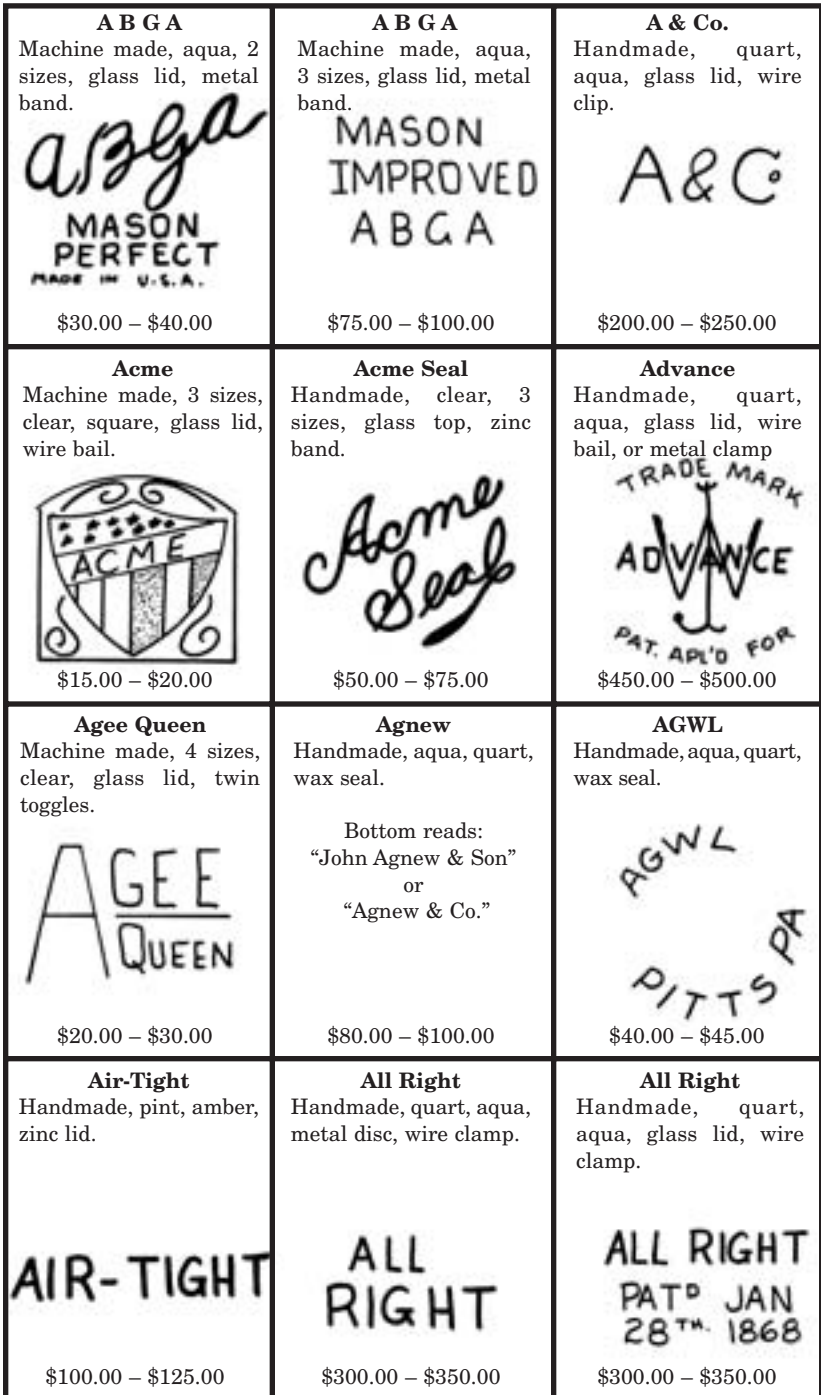 A B G A
Machine made, aqua, 2
sizes, glass lid, metal
band.
aBGa
MASON
PERFECT
MADE IN U.S.A.
$30.00 – $40.00
A B G A
Machine made, aqua,
3 sizes, glass lid, metal
band.
MASON
IMPROVED
A B G A
$75.00 – $100.00
A & Co.
Handmade, quart,
aqua, glass lid, wire
clip.
A & Co
$200.00 – $250.00
Acme
Machine made, 3 sizes,
clear, square, glass lid,
wire bail.
ACME
$15.00 – $20.00
Acme Seal
Handmade, clear, 3
sizes, glass top, zinc
band.
Acme
Seal
$50.00 – $75.00
Advance
Handmade, quart,
aqua, glass lid, wire
bail, or metal clamp
TRADE MARK
ADVANCE
PAT. APL'D FOR
$450.00 – $500.00
Agee Queen
Machine made, 4 sizes,
clear, glass lid, twin
toggles.
AGEE
QUEEN
$20.00 – $30.00
Agnew
Handmade, aqua, quart,
wax seal.
Bottom reads:
“John Agnew & Son”
or
“Agnew & Co.”
$80.00 – $100.00
AGWL
Handmade, aqua, quart,
wax seal.
AGWL
PITTS PA
$40.00 – $45.00
Air-Tight
Handmade, pint, amber,
zinc lid.
AIR-TIGHT
$100.00 – $125.00
All Right
Handmade, quart, aqua,
metal disc, wire clamp.
ALL
RIGHT
$300.00 – $350.00
All Right
Handmade, quart,
aqua, glass lid, wire
clamp.
ALL RIGHT
PATD JAN
28TH. 1868
$300.00 – $350.00